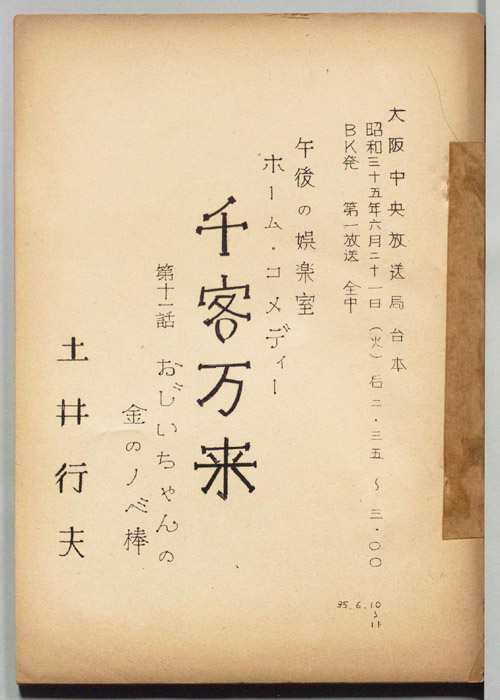 大阪中央放送局台本
昭和三十五年六月二十一日（火）后二・三五～三・〇〇
BK発　第一放送　全中
午後の娯楽室
ホーム・コメディー
千客万来
第十二話　おじいちゃんの
金のノベ棒
土井行夫
35.6.10
～
11